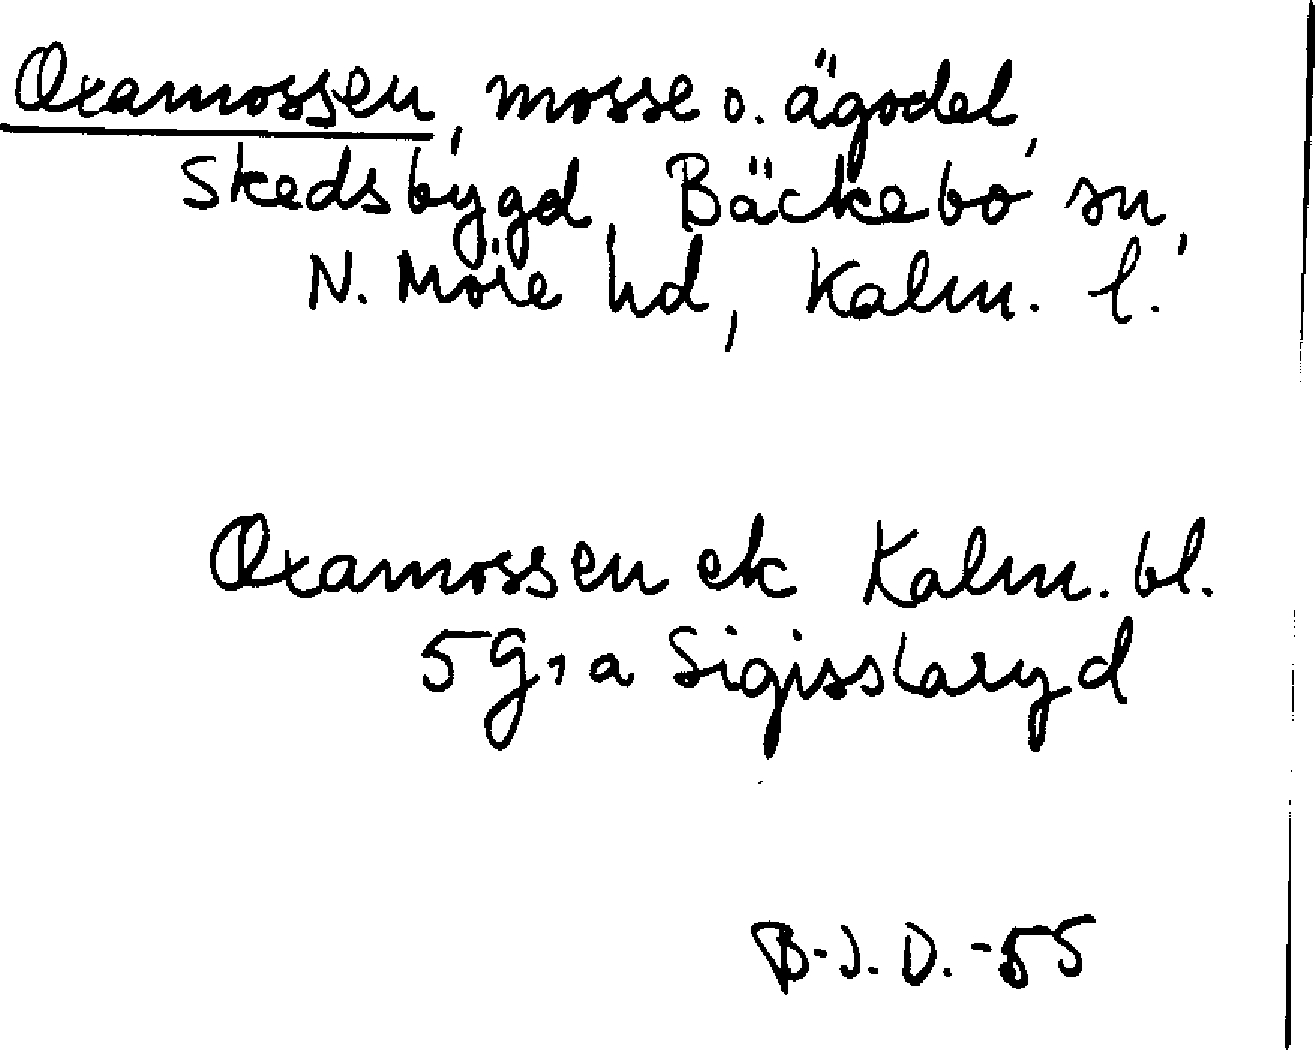 Oxamossen, mosse o. ägodel,
Skedsbygd, Bäckebo sn,
N. Möre hd, Kalm. l.
Oxamossen ek Kalm. bl.
5 G, a Sigisslaryd
B-J. D. -55